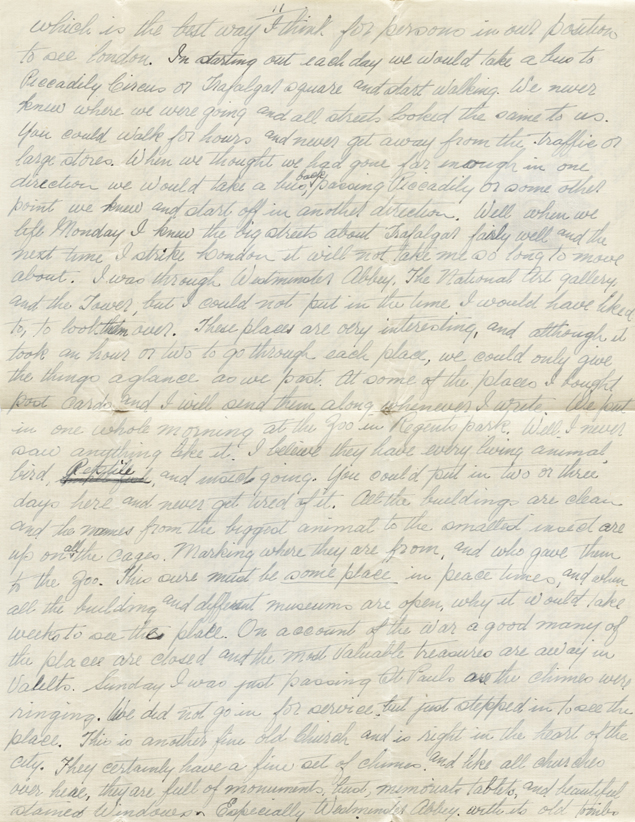 which is the best way I think for persons in our position
to see london. In starting out each day we would take a bus to
Piccadily Circus or Trafalgar square and start walking. We never
knew where we were going and all streets looked the same to us.
You could walk for hours and never get away from the traffic or
large stores. When we thought we had gone far enough in one
direction we would take a bus back passing Piccadily or some other
point we knew and start off in another direction. Well when we
left Monday I knew the big streets about Trafalgar fairly well and the
next time I strike London it will not take me so long to move
about. I was through Westminster Abbey, The National Art gallery,
and the Tower, but I could not put in the time I would have liked
to, to look them over. These places are very interesting, and although it
took an hour or two to go through each place, we could only give
the things a glance as we past. At some of the places I bought
post Cards and I will send them along whenever I write. We put
in one whole morning at the Zoo in Regents park. Well I never
saw anything like it. I believe they have every living animal
bird, Reptile and insect going. You could put in two or three
days here and never get tired of it. All the buildings are clean
and the names from the biggest animal to the smallest insect are
up on all the cages. Marking where they are from, and who gave them
to the Zoo. This sure must be some place in peace times, and when
all the building and different museums are open, why it would take
weeks to see the place. On account of the war a good many of
the places are closed and the most valuable treasures are away in
Vaults. Sunday I was just passing St Pauls as the chimes were
ringing. We did not go in for service but just stepped in to see the
place. This is another fine old Church and is right in the heart of the
city. They certainly have a fine set of chimes and like all churches
over hear, they are full of monuments, bust, memorials tablets, and beautiful
stained Windows. Especially Westminster Abbey. with its old tombs